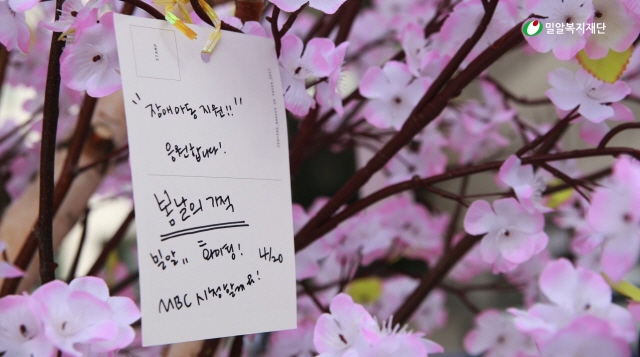 밀알복지재단
STAMP
"장애아동 지원!!"
응원합니다!
봄날의 기적
밀알,, 화이팅! 4/20
MBC 시청할께요!